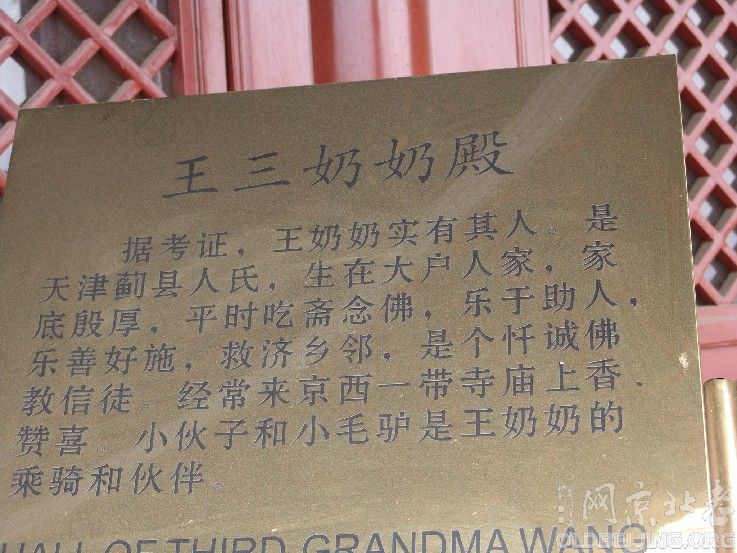 王三奶奶殿
据考证，王奶奶实有其人。是
天津蓟县人氏，生在大户人家，家
底殷厚，平时吃斋念佛，乐于助人，
乐善好施，救济乡邻，是个忏诚佛
教信徒。经常来京西一带寺庙上香、
赞喜。小伙子和小毛驴是王奶奶的
乘骑和伙伴。
HALL OF THIRD GRANDMA WANG
网京北老
OLDBEIJING.ORG